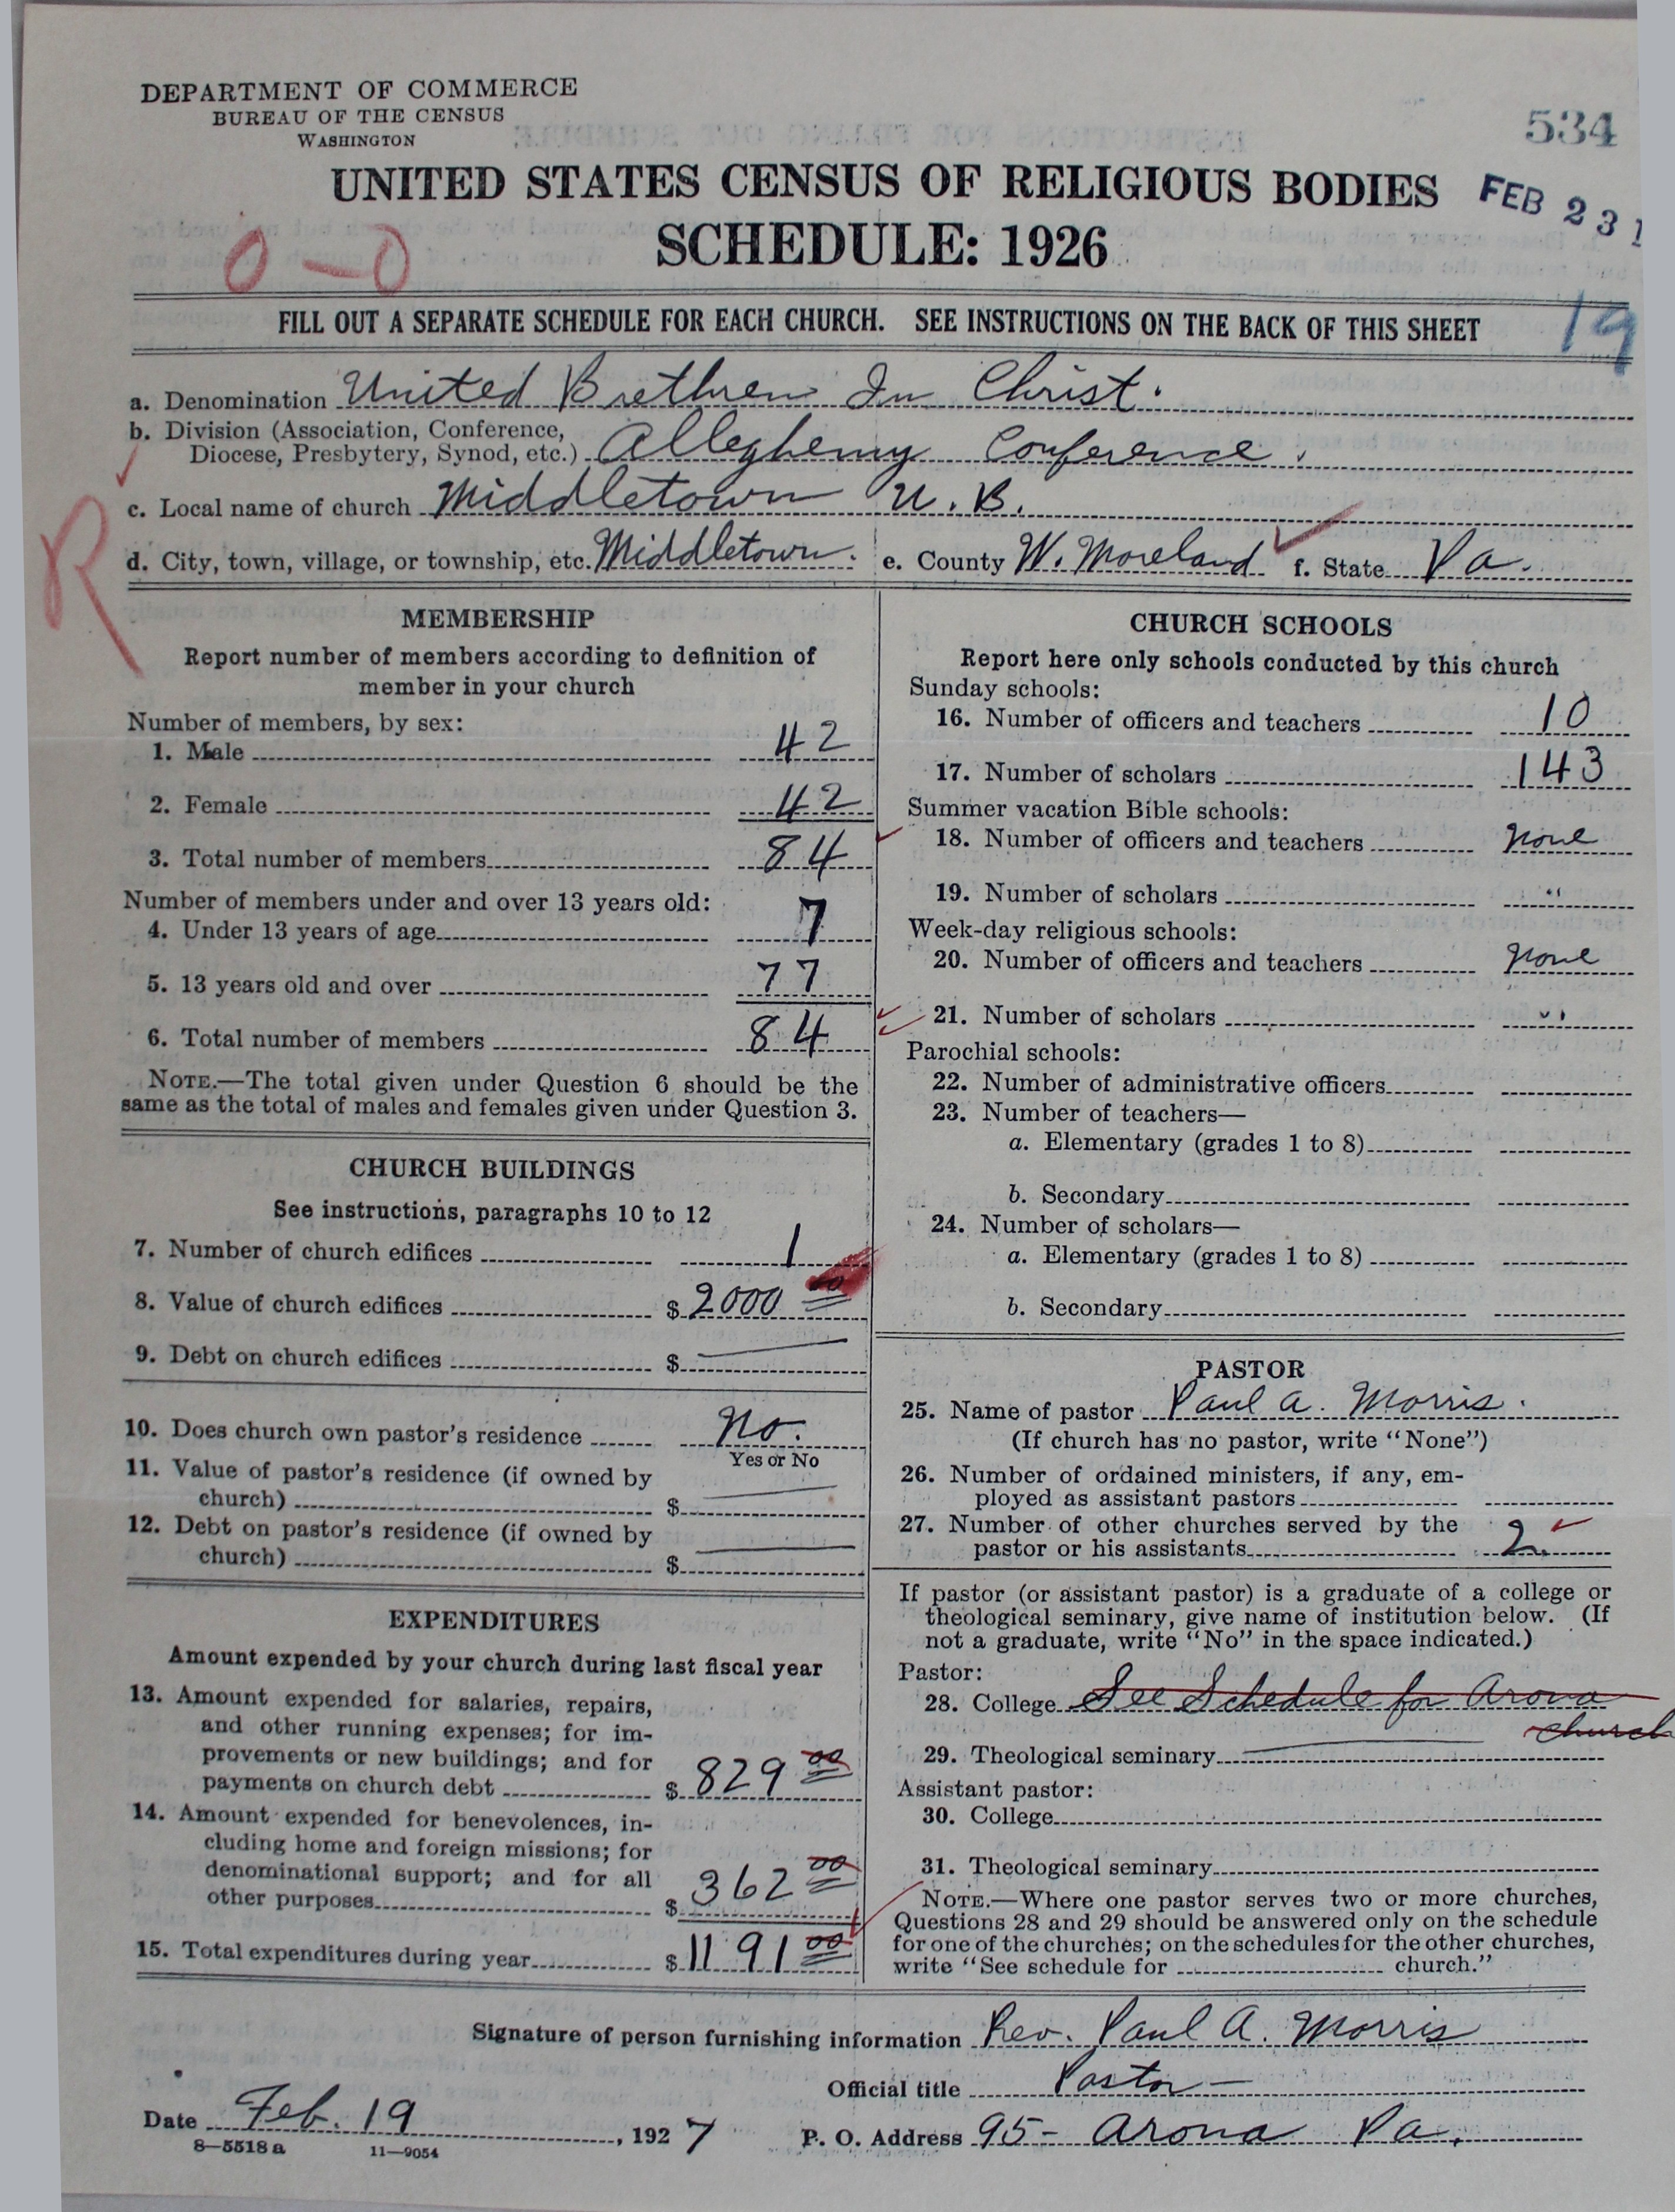 DEPARTMENT OF COMMERCE
BUREAU OF THE CENSUS
WASHINGTON
534
UNITED STATES CENSUS OF RELIGIOUS BODIES
FEB 23 1
SCHEDULE: 1926
0-0
FILL OUT A SEPARATE SCHEDULE FOR EACH CHURCH. SEE INSTRUCTIONS ON THE BACK OF THIS SHEET
19
a. Denomination United Brethren In Christ.
b. Division (Association, Conference,
Diocese, Presbytery, Synod, etc.) Allegheny Conference.
c. Local name of church Middletown U. B.
R
d. City, town, village, or township, etc. Middletown. e. County W. Moreland f. State Pa.
MEMBERSHIP
Report number of members according to definition of
member in your church
Number of members, by sex:
1. Male 42
2. Female 42
3. Total number of members 84
Number of members under and over 13 years old:
4. Under 13 years of age 7
5. 13 years old and over 77
6. Total number of members 84
NOTE.—The total given under Question 6 should be the
same as the total of males and females given under Question 3.
CHURCH BUILDINGS
See instructions, paragraphs 10 to 12
7. Number of church edifices 1
8. Value of church edifices $ 2000 00
9. Debt on church edifices $ —
10. Does church own pastor's residence No.
Yes or No
11. Value of pastor's residence (if owned by
church) $ —
12. Debt on pastor's residence (if owned by
church) $ —
EXPENDITURES
Amount expended by your church during last fiscal year
13. Amount expended for salaries, repairs,
and other running expenses; for im-
provements or new buildings; and for
payments on church debt $ 829 00
14. Amount expended for benevolences, in-
cluding home and foreign missions; for
denominational support; and for all
other purposes $ 362 00
15. Total expenditures during year $ 1191 00
CHURCH SCHOOLS
Report here only schools conducted by this church
Sunday schools:
16. Number of officers and teachers 10
17. Number of scholars 143
Summer vacation Bible schools:
18. Number of officers and teachers none
19. Number of scholars "
Week-day religious schools:
20. Number of officers and teachers none
21. Number of scholars "
Parochial schools:
22. Number of administrative officers
23. Number of teachers—
a. Elementary (grades 1 to 8)
b. Secondary
24. Number of scholars—
a. Elementary (grades 1 to 8)
b. Secondary
PASTOR
25. Name of pastor Paul A. Morris.
(If church has no pastor, write "None")
26. Number of ordained ministers, if any, em-
ployed as assistant pastors
27. Number of other churches served by the
pastor or his assistants 2.
If pastor (or assistant pastor) is a graduate of a college or
theological seminary, give name of institution below. (If
not a graduate, write "No" in the space indicated.)
Pastor:
28. College See Schedule for Arona
church
29. Theological seminary —
Assistant pastor:
30. College
31. Theological seminary
NOTE.—Where one pastor serves two or more churches,
Questions 28 and 29 should be answered only on the schedule
for one of the churches; on the schedules for the other churches,
write "See schedule for church."
Signature of person furnishing information Rev. Paul A. Morris
Official title Pastor —
Date Feb. 19, 1927
P. O. Address 95- Arona Pa.
8—5518 a 11—9054